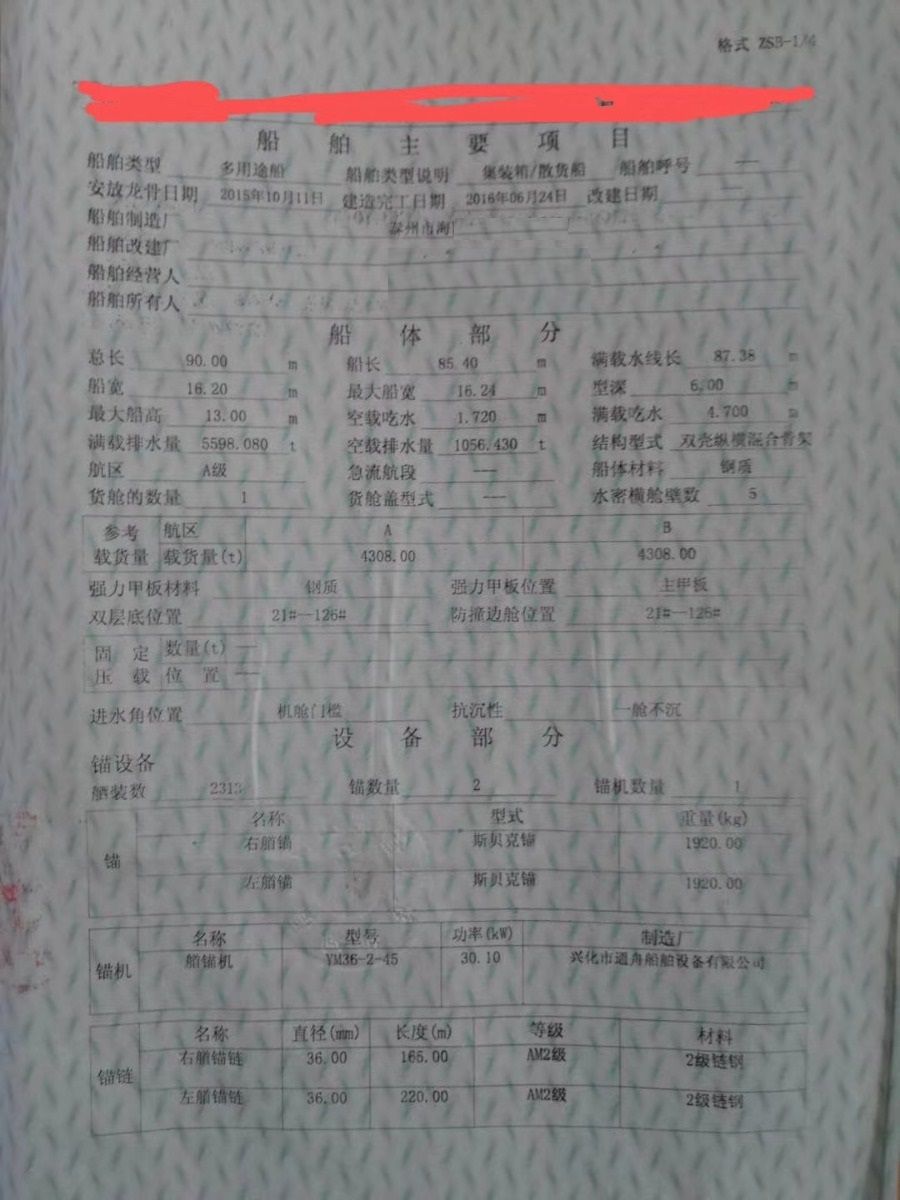 格式 ZSB-1/4
船舶主要项目
船舶类型 多用途船 船舶类型说明 集装箱/散货船 船舶呼号 ---
安放龙骨日期 2015年10月11日 建造完工日期 2016年06月24日 改建日期
船舶制造厂 泰州市海
船舶改建厂
船舶经营人
船舶所有人
船体部分
总长 90.00 m 船长 85.40 m 满载水线长 87.38 m
船宽 16.20 m 最大船宽 16.24 m 型深 6.00 m
最大船高 13.00 m 空载吃水 1.720 m 满载吃水 4.700 m
满载排水量 5598.080 t 空载排水量 1056.430 t 结构型式 双壳纵横混合骨架
航区 A级 急流航段 --- 船体材料 钢质
货舱的数量 1 货舱盖型式 --- 水密横舱壁数 5
参考 航区 A B
载货量 载货量(t) 4308.00 4308.00
强力甲板材料 钢质 强力甲板位置 主甲板
双层底位置 21#--126# 防撞边舱位置 21#--126#
固定 数量(t) ---
压载 位置 ---
进水角位置 机舱门槛 抗沉性 一舱不沉
设备部分
锚设备
舾装数 2313 锚数量 2 锚机数量 1
名称 型式 重量(kg)
右艏锚 斯贝克锚 1920.00
锚
左艏锚 斯贝克锚 1920.00
名称 型号 功率(kW) 制造厂
锚机 艏锚机 YM36-2-45 30.10 兴化市通舟船舶设备有限公司
名称 直径(mm) 长度(m) 等级 材料
右艏锚链 36.00 165.00 AM2级 2级链钢
锚链
左艏锚链 36.00 220.00 AM2级 2级链钢